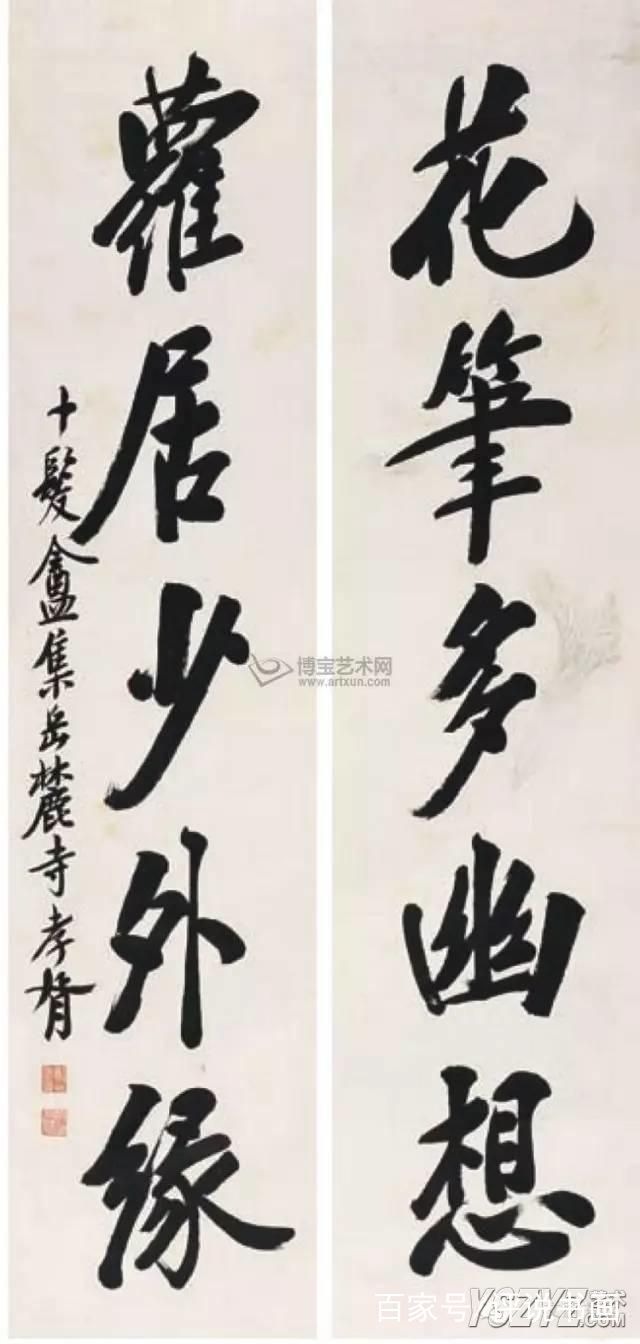 花筆多幽想
蘿居少外緣
十髮盦集岳麓寺孝胥
博宝艺术网
www.artxun.com
百家号